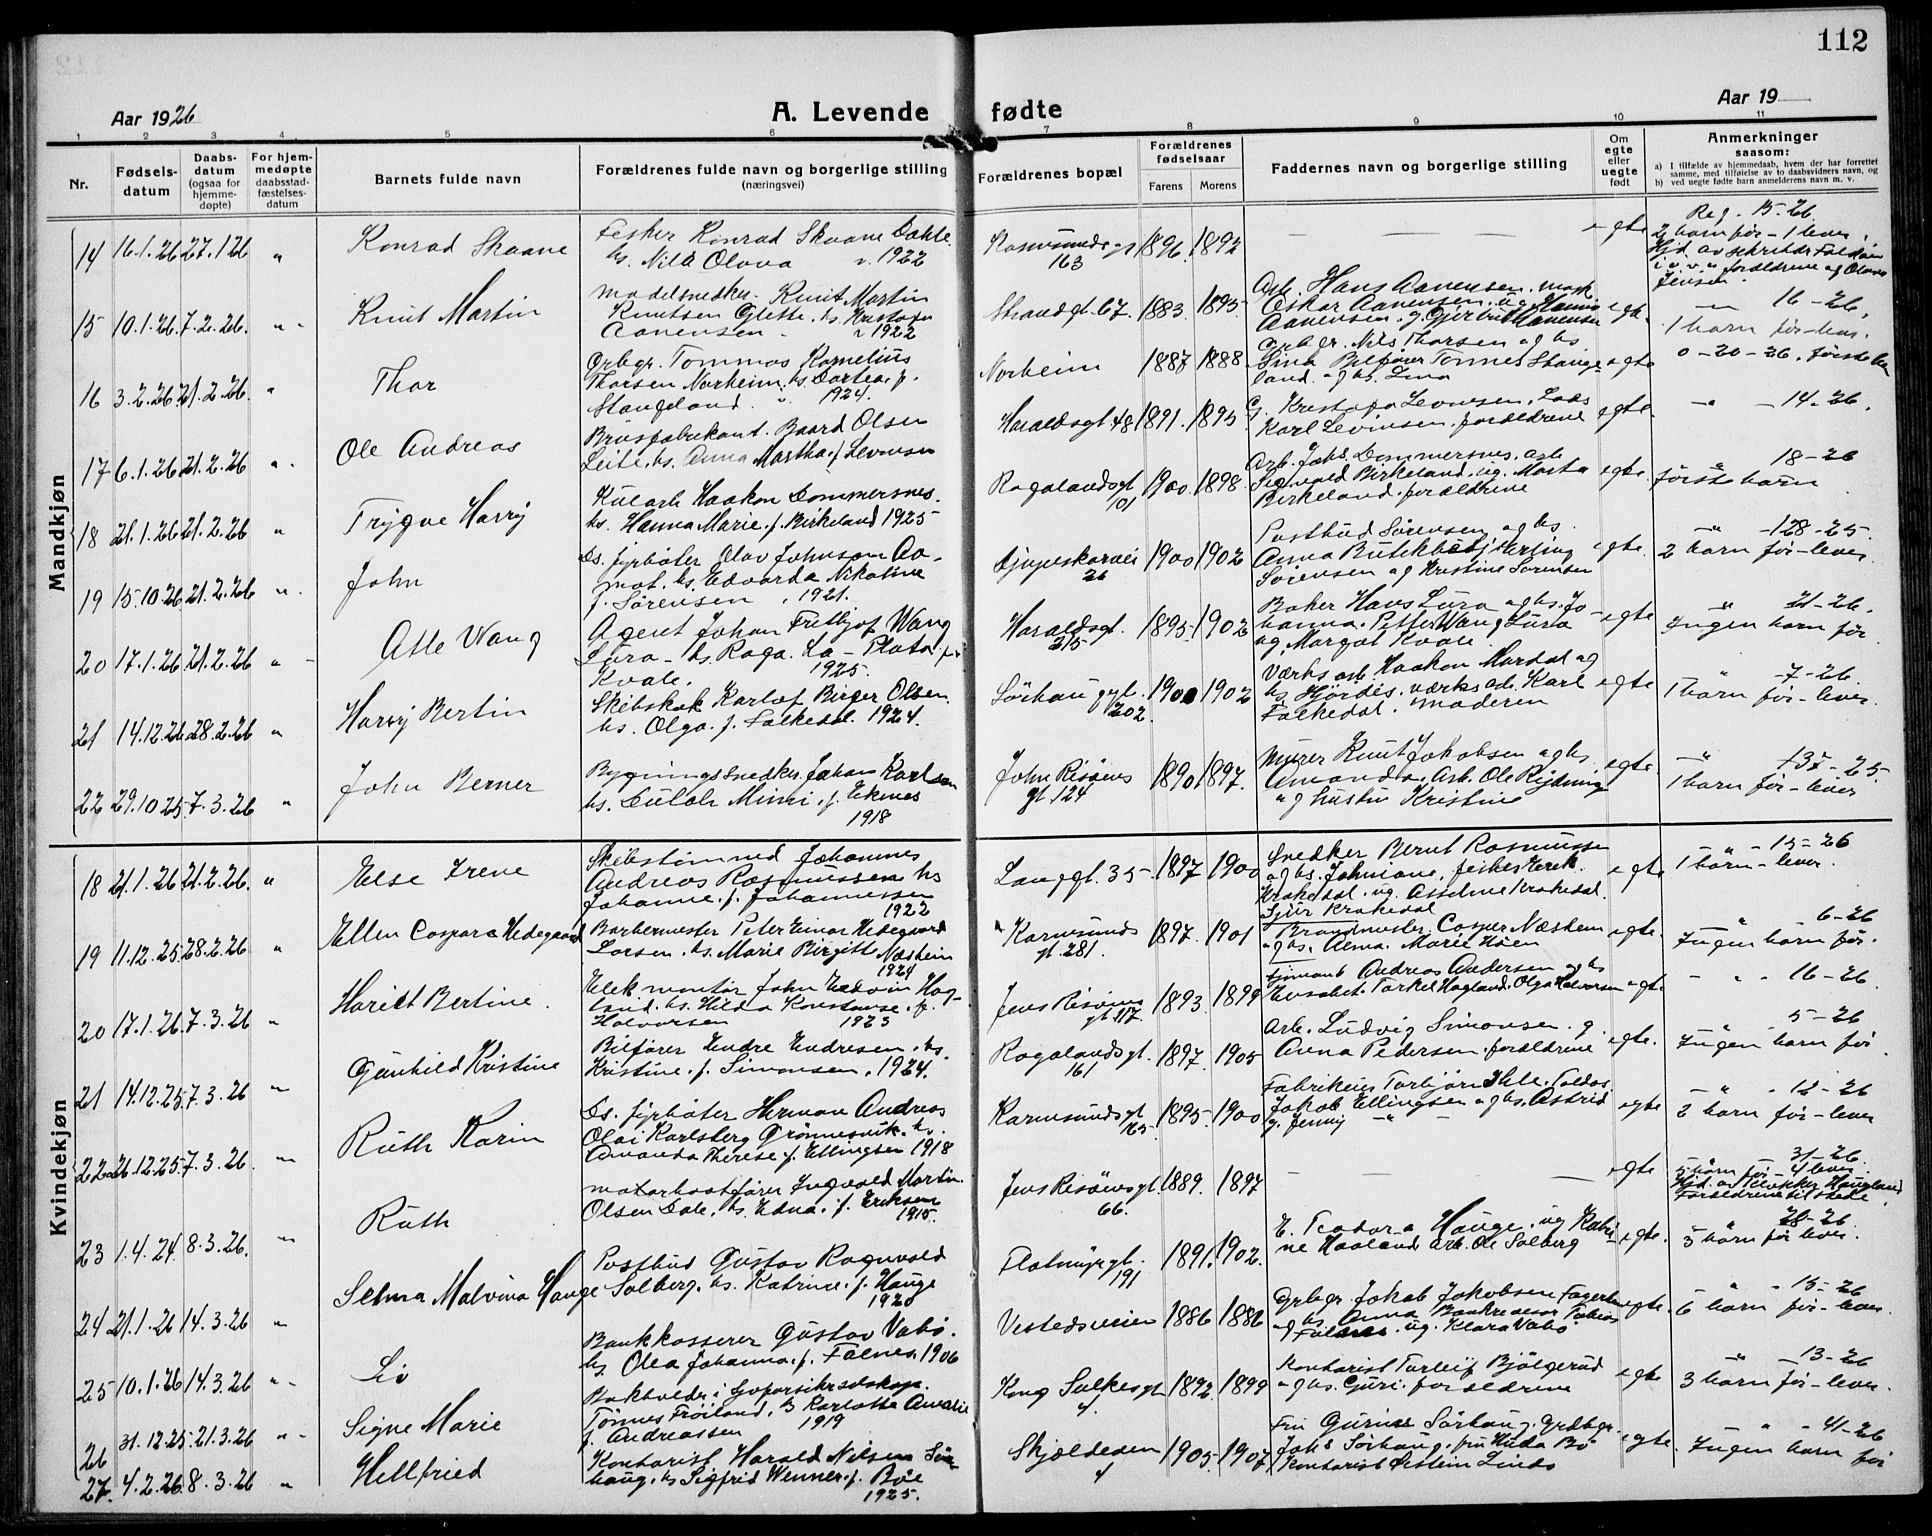 112
Aar 1926
A. Levende fødte
Aar 19
1 2 3 4 5 6 7 8 9 10 11
Nr.
Fødsels-
datum
Daabs-
datum
(ogsaa for
hjemme-
døpte)
For hjem-
medøpte
daabsstad-
fæstelses-
datum
Barnets fulde navn
Forældrenes fulde navn og borgerlige stilling
(næringsvei)
Forældrenes bopæl
Forældrenes
fødselsaar
Farens
Morens
Faddernes navn og borgerlige stilling
Om
egte
eller
uegte
født
Anmerkninger
saasom:
a) I tilfælde av hjemmedaab, hvem der har forrettet
samme, med tilføielse av to daabsvidners navn, og
b) ved uegte fødte barn anmelderens navn m. v.
Mandkjøn
14 16.1.26 27.1 26 " Konrad Skaane
Fisker Konrad Skaane Dahle
hs. Nilla Olava 1922
163 1896. 1892 egte
Reg. 15-26.
2 barn før - 1 lever.
15 10.1.26. 7.2.26. " Knut Martin
Modelsnedker. Knut Martin
Knutsen Glette. hs. Kristofa
Aanensen 1922
Strandgt. 67. 1883. 1895.
Arb. Hans Aanensen. mask
Oskar Aanensen. ug. Hanna
Aanensen. g. Gjertrud Aanensen
egte.
16-26.
1 barn før - lever.
16 3.2.26. 21.2.26. " Thor
Grbgr. Tommas Kornelius
Thorsen Norheim. hs. Dortea. f.
Stangeland. 1924.
Norheim 1887 1888
Grbgr. Nils Thorsen og hs.
Sina Bilfører Tønnes Stange-
land. og hs. Lina
egte
0-20-26. første
17 6.1.26 21.2.26 " Ole Andreas
Brusfabrikant. Baard Olsen
Leite. hs. Anna Martha. f. Levinsen
Haraldsgt 48 1891. 1895.
Karl Levinsen. forældrene
egte.
" - 14-26.
18 21.1.26 21.2.26 " Trygve Harry
Kularb. Haakon Dommersnes.
hs. Hanna Marie. f. Birkeland 1925
Rogalandsgt
101 1900. 1898.
Arb. Johs. Dommersnes. arb
Sigvald Birkeland. ug. Marta
Birkeland. forældrene
egte.
18-26
første barn
19 15.10.26 21.2.26 " John
Ds. fyrbøter Olav Johnsen Aa-
mot. hs. Edvarda Nikoline
f. Sørensen. 1921.
26 1900 1902
Postbud Sørensen og hs.
Sørensen og Kristine Sørensen
egte.
" - 128-25.
2 barn før - lever
20 17.1.26 21.2.26 " Atle Wang
Agent Johan Fritjof Wang
Lura - hs. Raga. La - Plata. f.
Kvale. 1925.
Haraldsgt.
215 1895. 1902
Baker Hans Lura og hs. Jo-
hanna. Petter Wang Lura
og Margot Kvale.
egte
" 21-26.
Ingen barn før
21 14.12.26 28.2.26 " Harry Bertin
Skibskok Karlof Birger Olsen.
hs. Olga. f. Falkedal. 1924.
Sørhauggt.
202. 1900 1902
Værks arb. Haakon Mardal og
hs. Hjørdis. værks arb. Karl
Falkedal. Moderen
egte
" - 7-26.
1 barn før - lever.
22 29.10.25 7.3.26 " John Berner
Bygningssnedker. Johan Karlsen
hs. Mimi. f. Eknes
1918
gt. 124 1890 1897.
Murer Knut Jakobsen og hs.
Amanda. Arb. Ole
og hustru Kristine
egte.
1 barn før - lever
Kvindekjøn
18 21.1.26 21.2.26. " Else Irene
Skibstømmed Johannes
Andreas Rasmussen hs
Johanne. f. Johannessen
1922
Langgt. 35. 1897 1900
Snedker Bernt Rasmussen
og hs. Johanne, fisker Erik
Krakedal. ug. Asseline Krakedal
Sjur Krakedal
egte
" - 15-26
1 barn - lever.
19 11.12.25 28.2.26 " Ellen Caspara Hedegaard
Barbermester Peter Einar Hedegaard
Larsen. hs. Marie Birgitte Næsheim
1924
Karmsunds
gt. 281. 1897. 1901
Brandmester Casper Næsheim
og hs. Alma. Marie Høien
egte.
" - 6-26
Ingen barn før.
20 17.1.26. 7.3.26 " Hariett Bertine.
Elek montør John Edvin Hag-
land. hs. Hilda Konstanse. f.
Halvorsen 1923
gt. 117. 1893. 1899
Andreas Andersen og hs
Elisabet. Torkel Hagland. Olga Halvorsen
egte.
" " 16-26
21 14.12.25 7.3.26 " Gunhild Kristine
Bilfører Endre Endresen. hs.
Kristine. f. Simonsen. 1924.
Rogalandsgt.
161 1897. 1905
Arb. Ludvig Simonsen. g.
Anna Pedersen. forældrene
egte.
" 5-26
Ingen barn før
22 26.12.25. 7.3.26. " Ruth Karin
Ds. fyrbøter Herman Andreas
Olai Karlsberg Grønnesvik. hs.
Amanda Therese. f. Ellingsen 1918
Karmsundsgt
165. 1895. 1900
Fabrikeier Torbjørn Ihle.
Jakob Ellingsen og hs. Astrid
g. Jenny
egte
" - 12-26
2 barn før - lever
23 1.4.24. 8.3.26. " Ruth
Motorbaatfører Ingvald Martin
Olsen Dale. hs Edna. f. Eriksen
1915.
Jens Risøensgt.
66. 1889. 1897 egte
31-26.
5 barn før - 4 lever.
Forældrene tilstede
24 21.1.26 14.3.26 " Selma Malvina Hauge
Postbud Gustav Ragnvald
Solberg. hs. Katrine. f. Hauge
1920
Flotmyrgt.
191 1891. 1902.
E. Teodora Hauge. ug Katri-
ne Haaland arb. Ole Solberg
egte.
28-26.
3 barn før lever.
25 10.1.26 14.3.26 " Liv
Bankkasserer Gustav Vabø.
hs. Olea Johanna. f. Falnes. 1906
1886 1886
Grbgr. Jakob Jakobsen
ug. Klara Vabø
egte.
" - 15-26
6 barn før - lever.
26 31.12.25. 21.3.26 " Signe Marie
Bokholder i
Tønnes Frøiland. hs Karlotte Amalie
f. Andreassen 1919
Kong Sulkesgt
4. 1892 1899
Kontorist Torleif Bjølgerud
og hs. Guri. forældrene
egte
" - 13-26
3 barn før - lever.
27. 4.2.26. 8.3.26 " Hellfried
Kontorist Harald Nilsen Sør-
haug. hs Sigfrid Wenner. f. Bøe
1925.
Skjoldaveien
4 1905. 1907
Fru Gurine Sørhaug. Grdbgr.
Johs Sørhaug. fru Hilda Bø
Kontorist Øistein Linds
egte.
" " 41-26
Ingen barn før